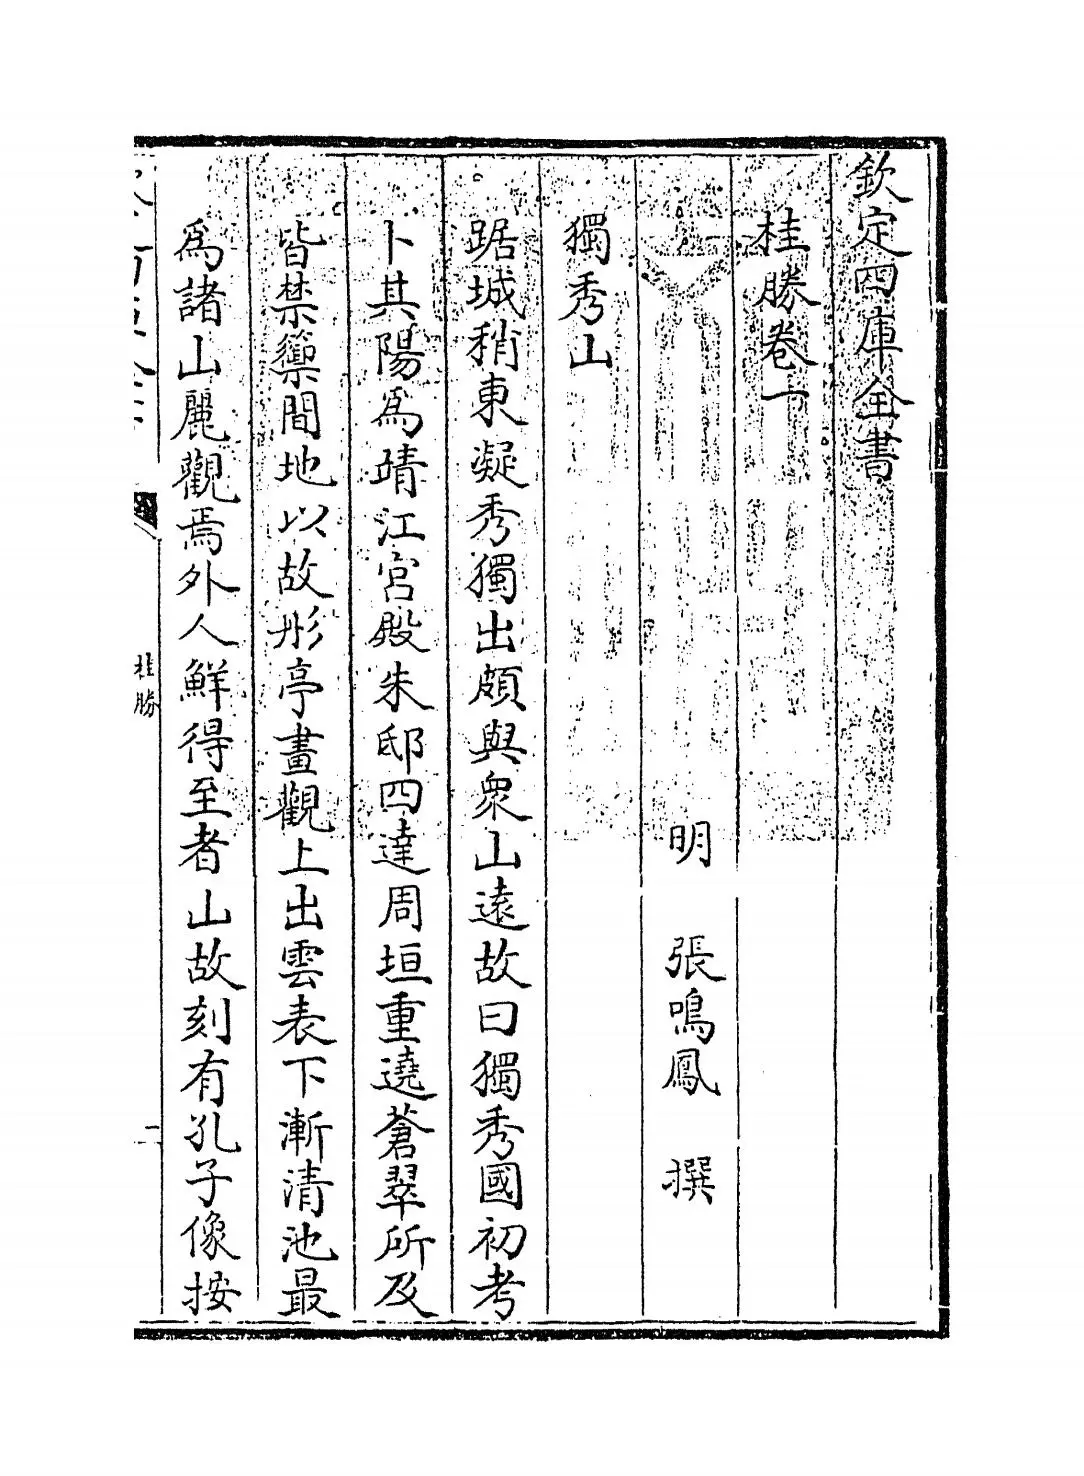 欽定四庫全書
桂勝卷一
明 張鳴鳳 撰
獨秀山
踞城稍東凝秀獨出頗與衆山遠故曰獨秀國初考
卜其陽為靖江宮殿朱邸四達周垣重遶蒼翠所及
皆禁籞間地以故彤亭畫觀上出雲表下漸清池最
為諸山麗觀焉外人鮮得至者山故刻有孔子像按
桂勝